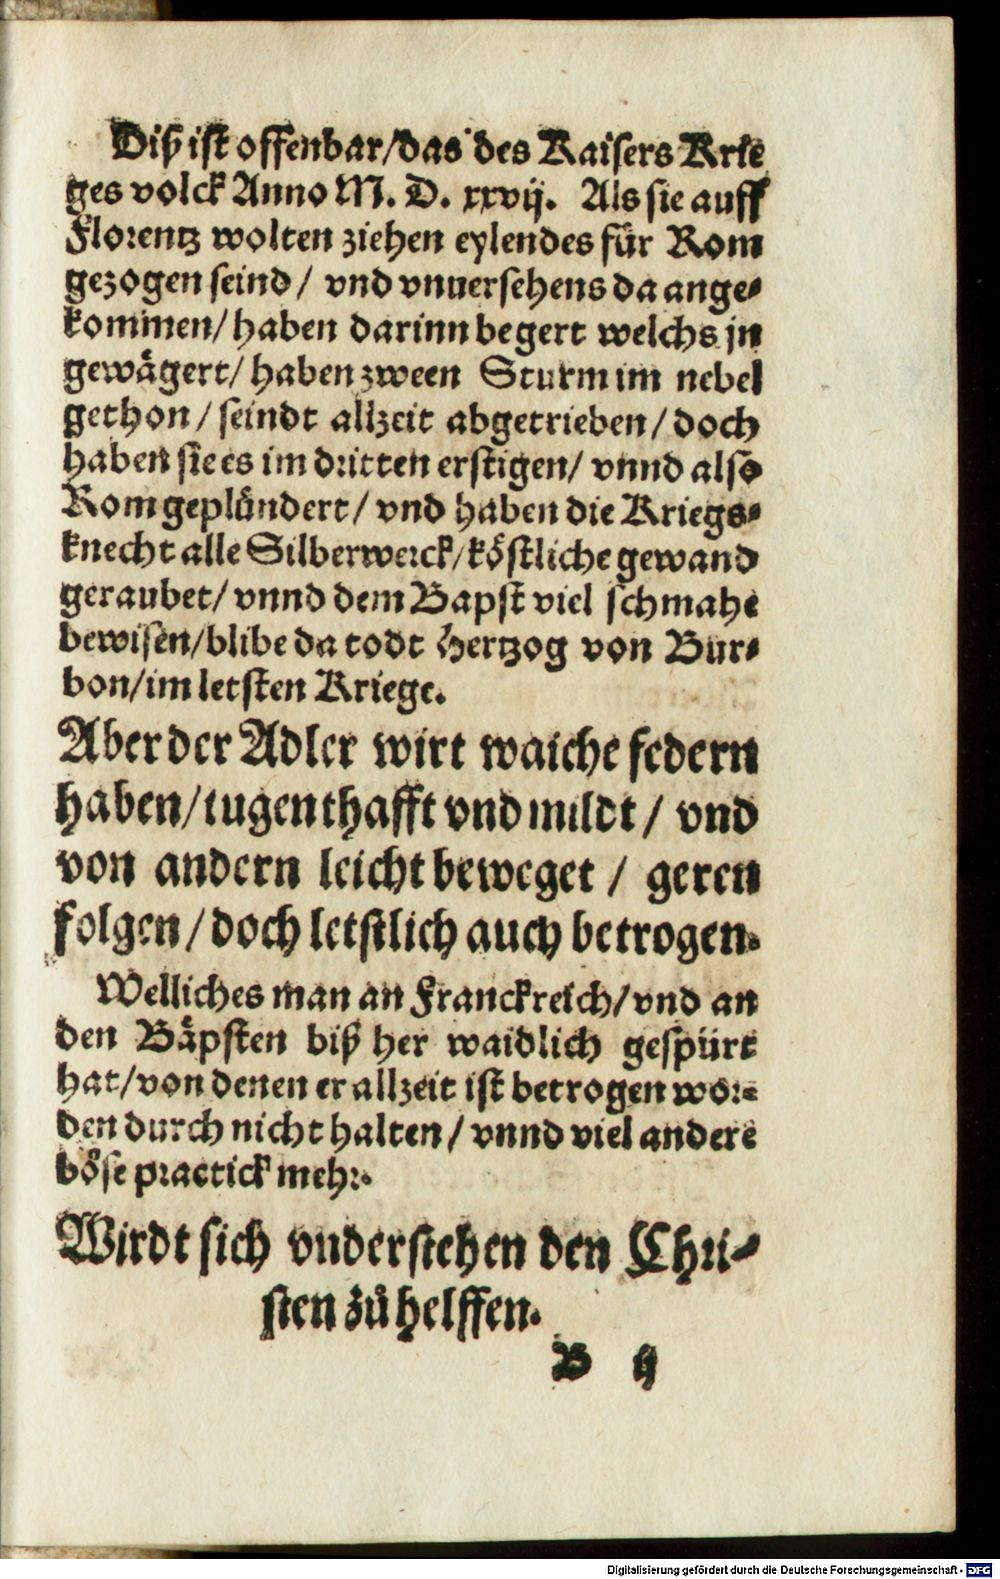 Diß ist offenbar/das des Kaisers Krie
ges volck Anno M. D. xxvij. Als sie auff
Florentz wolten ziehen eylendes für Rom
gezogen seind/ vnd vnuersehens da ange⸗
kommen/ haben darinn begert welchs jn
gewägert/ haben zween Sturm im nebel
gethon/ seindt allzeit abgetrieben/ doch
haben sie es im dritten erstigen/ vnnd also
Rom geplündert/ vnd haben die Kriegs⸗
knecht alle Silberwerck/köstliche gewand
geraubet/ vnnd dem Bapst viel schmahe
bewisen/blibe da todt Hertzog von Bur⸗
bon/im letsten Kriege.
Aber der Adler wirt waiche federn
haben/tugenthafft vnd mildt/ vnd
von andern leicht beweget/ geren
folgen/doch letstlich auch betrogen.
Welliches man an Franckreich/vnd an
den Bäpsten biß her waidlich gespürt
hat/von denen er allzeit ist betrogen wor⸗
den durch nicht halten/ vnnd viel andere
böse practick mehr.
Wirdt sich vnderstehen den Chri⸗
sten zů helffen.
B ij
Digitalisierung gefördert durch die Deutsche Forschungsgemeinschaft - DFG